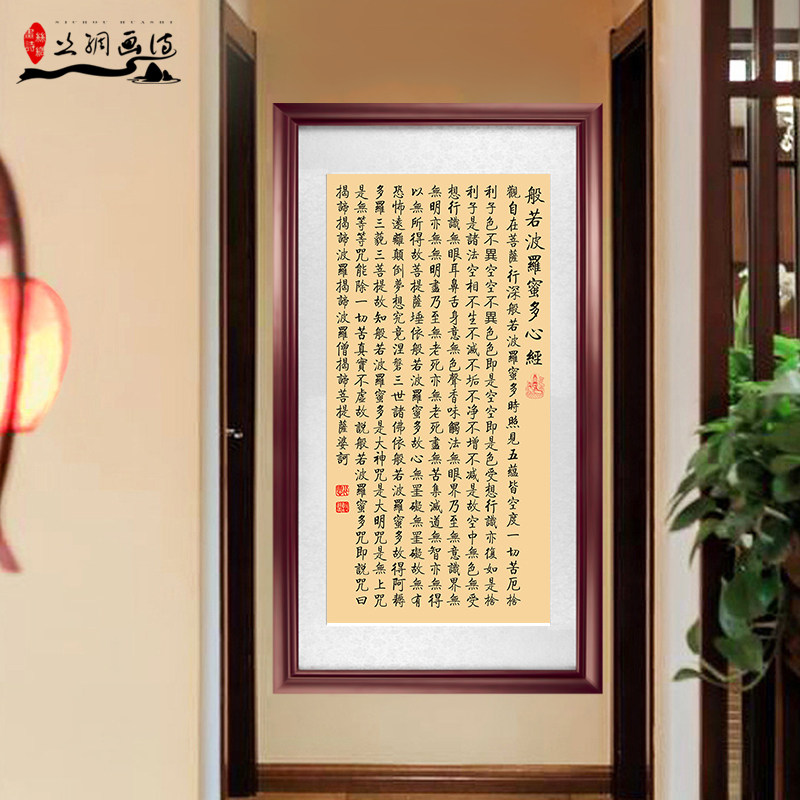 SICHOU HUASHI
丝绸画诗
般若波羅蜜多心經
觀自在菩薩行深般若波羅蜜多時照見五蘊皆空度一切苦厄捨
利子色不異空空不異色色即是空空即是色受想行識亦復如是捨
利子是諸法空相不生不滅不垢不净不增不減是故空中無色無受
想行識無眼耳鼻舌身意無色聲香味觸法無眼界乃至無意識界無
無明亦無無明盡乃至無老死亦無老死盡無苦集滅道無智亦無得
以無所得故菩提薩埵依般若波羅蜜多故心無罣礙無罣礙故無有
恐怖遠離顛倒夢想究竟涅槃三世諸佛依般若波羅蜜多故得阿耨
多羅三藐三菩提故知般若波羅蜜多是大神咒是大明咒是無上咒
是無等等咒能除一切苦真實不虛故說般若波羅蜜多咒即說咒曰
揭諦揭諦波羅揭諦波羅僧揭諦菩提薩婆訶